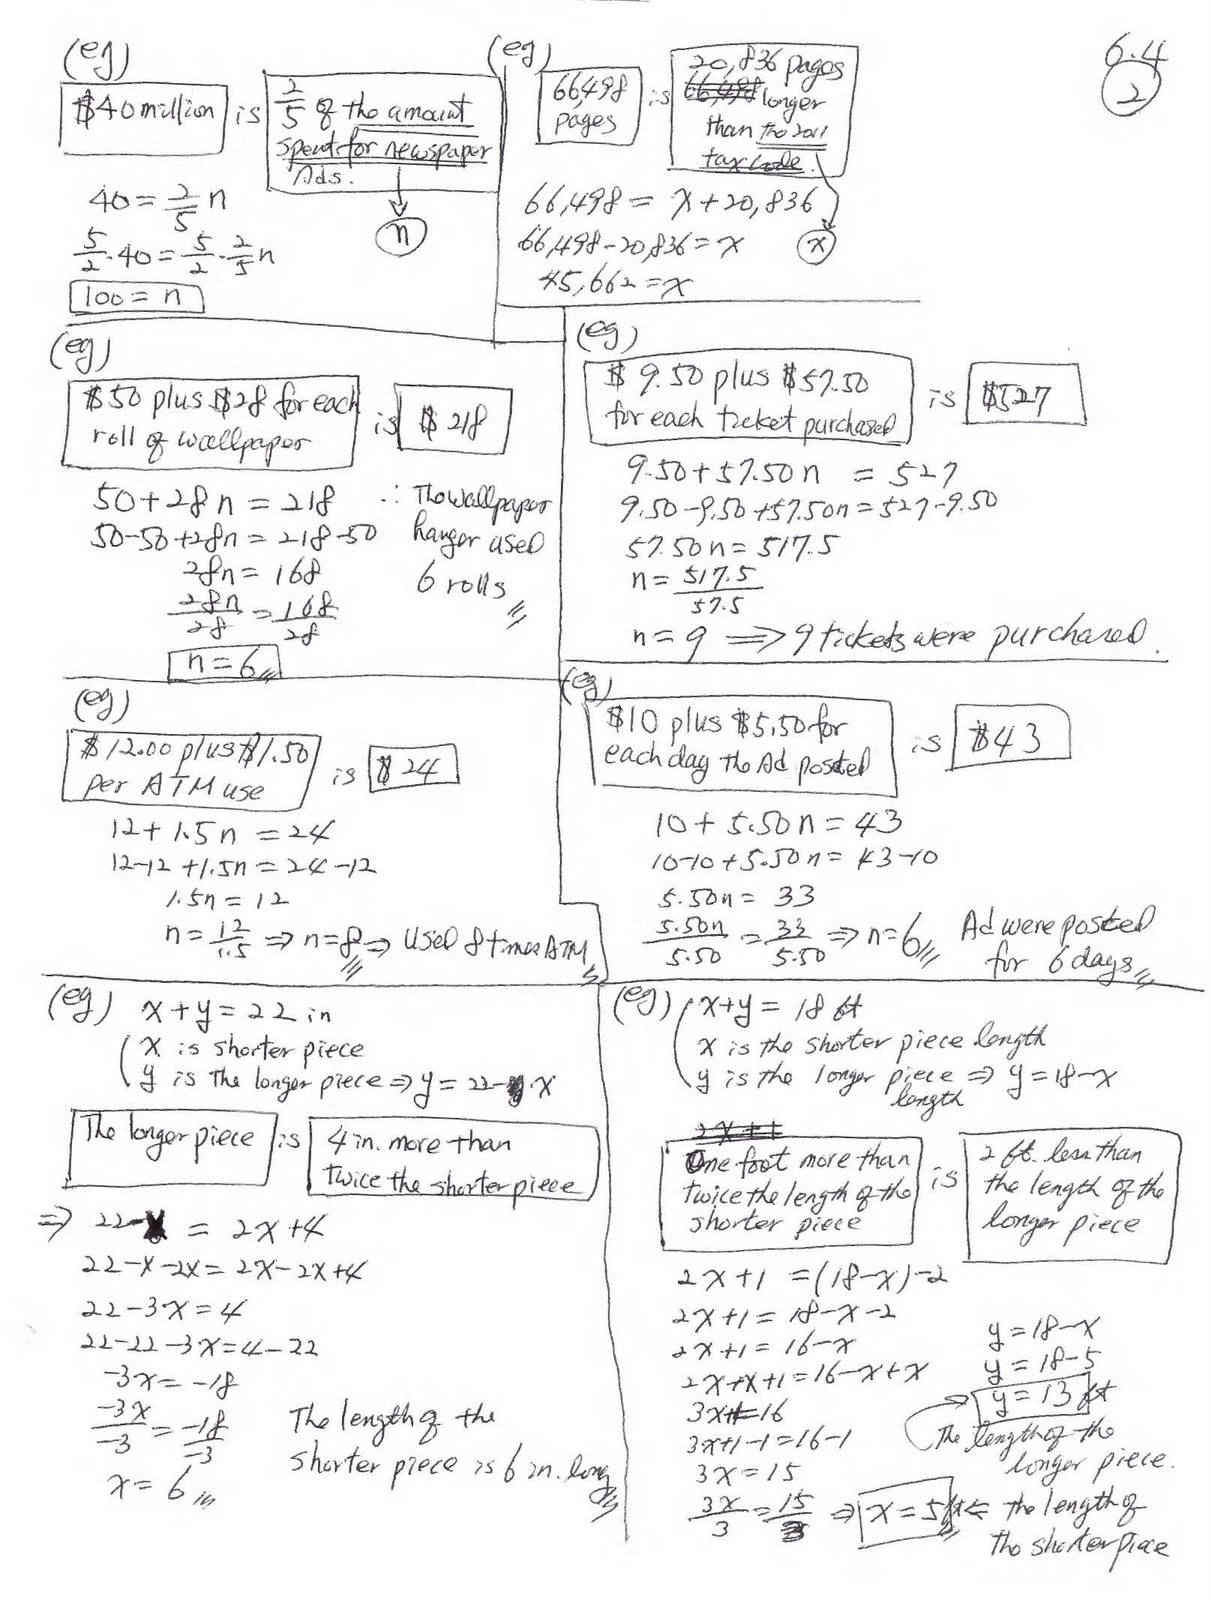 6.4
2
(eg)
$40 million is 2/5 of the amount
spent for newspaper
Ads.
n
40 = 2/5 n
5/2 · 40 = 5/2 · 2/5 n
100 = n
(eg)
66,498
pages
is
20,836 pages
66,498 longer
than the 2011
tax code.
x
66,498 = x + 20,836
66,498 - 20,836 = x
45,662 = x
(eg)
$50 plus $28 for each
roll of wallpaper
is $218
50 + 28n = 218
50-50+28n = 218-50
28n = 168
28n/28 = 168/28
n = 6
∴ The wallpaper
hanger used
6 rolls
(eg)
$9.50 plus $57.50
for each ticket purchased
is $527
9.50 + 57.50n = 527
9.50-9.50+57.50n = 527-9.50
57.50n = 517.5
n = 517.5/57.5
n = 9 ⇒ 9 tickets were purchased.
(eg)
$12.00 plus $1.50
per ATM use
is $24
12 + 1.5n = 24
12-12+1.5n = 24-12
1.5n = 12
n = 12/1.5 ⇒ n=8 ⇒ Used 8 times ATM
(eg)
$10 plus $5.50 for
each day the Ad posted
is $43
10 + 5.50n = 43
10-10+5.50n = 43-10
5.50n = 33
5.50n/5.50 = 33/5.50 ⇒ n=6
Ad were posted
for 6 days
(eg) x + y = 22 in
x is shorter piece
y is the longer piece ⇒ y = 22-x
The longer piece is 4 in. more than
twice the shorter piece
⇒ 22-x = 2x+4
22-x-2x = 2x-2x+4
22-3x = 4
22-22-3x = 4-22
-3x = -18
-3x/-3 = -18/-3
x = 6
The length of the
shorter piece is 6 in. long
(eg) x+y = 18 ft
x is the shorter piece length
y is the longer piece ⇒ y=18-x
length
2x+1
One foot more than
twice the length of the
shorter piece
is
2 ft. less than
the length of the
longer piece
2x+1 = (18-x)-2
2x+1 = 18-x-2
2x+1 = 16-x
2x+x+1 = 16-x+x
3x+1=16
3x+1-1=16-1
3x=15
3x/3 = 15/3 ⇒ x=5 ft ⇐ the length of
the shorter piece
y=18-x
y=18-5
y=13 ft
The length of the
longer piece.